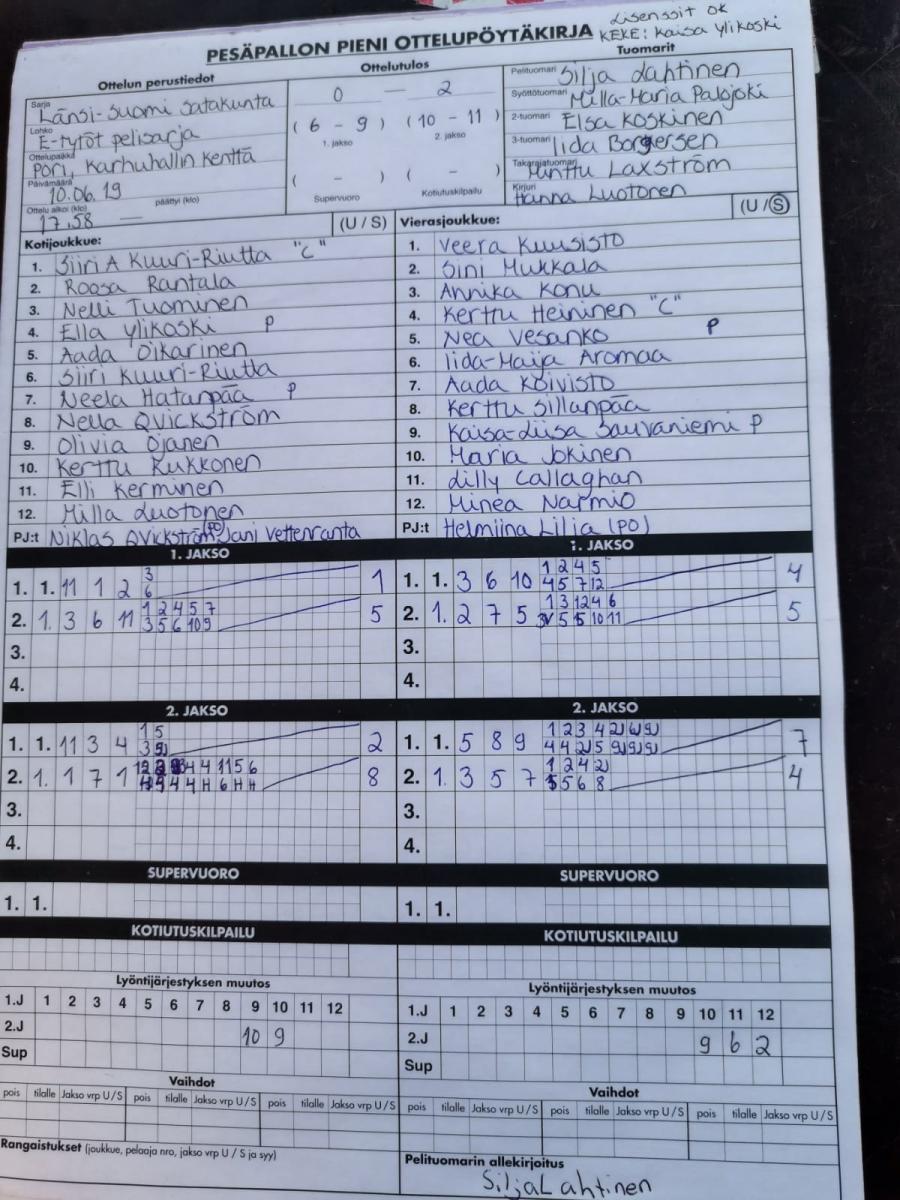 Lisenssit ok
KEKE: Kaisa Ylikoski
PESÄPALLON PIENI OTTELUPÖYTÄKIRJA
Ottelun perustiedot
Sarja Länsi-Suomi Satakunta
Lohko E-tytöt pelisarja
Ottelupaikka Pori, Karhuhallin kenttä
Päivämäärä 10.06.19
Ottelu alkoi (klo) päättyi (klo)
17.58 —
Ottelutulos
0 — 2
( 6 - 9 ) ( 10 - 11 )
1. jakso 2. jakso
( - ) ( - )
Supervuoro Kotiutuskilpailu
Tuomarit
Pelituomari Silja Lahtinen
Syöttötuomari Milla-Maria Palojoki
2-tuomari Elsa Koskinen
3-tuomari Iida Borgersen
Takarajatuomari Minttu Laxström
Kirjuri Hanna Luotonen
Kotijoukkue: (U / S)
1. Siiri A Kuuri-Riutta "C"
2. Roosa Rantala
3. Nelli Tuominen
4. Ella Ylikoski P
5. Aada Oikarinen
6. Siiri Kuuri-Riutta
7. Neela Hatanpää P
8. Nella Qvickström
9. Olivia Ojanen
10. Kerttu Kukkonen
11. Elli Kerminen
12. Milla Luotonen
PJ:t Niklas Qvickström (PO) Jani Vettenranta
Vierasjoukkue: (U / S)
1. Veera Kuusisto
2. Sini Mukkala
3. Annika Konu
4. Kerttu Heininen "C"
5. Nea Vesanko P
6. Iida-Maija Aromaa
7. Aada Koivisto
8. Kerttu Sillanpää
9. Kaisa-Liisa Sauvaniemi P
10. Maria Jokinen
11. Lilly Callaghan
12. Minea Narmio
PJ:t Helmiina Lilja (PO)
1. JAKSO
1. 1. 11 1 2 3 1
6
2. 1. 3 6 11 1 2 4 5 7 5
3 5 6 10 9
3.
4.
1. JAKSO
1. 1. 3 6 10 1 2 4 5 4
4 5 7 12
2. 1. 2 7 5 1 3 12 4 6 5
3.
4.
2. JAKSO
1. 1. 11 3 4 1 5 2
2. 1. 1 7 1 8
3.
4.
2. JAKSO
1. 1. 5 8 9 7
2. 1. 3 5 7 1 2 4 2 4
5 5 6 8
3.
4.
SUPERVUORO
1. 1.
SUPERVUORO
1. 1.
KOTIUTUSKILPAILU
KOTIUTUSKILPAILU
Lyöntijärjestyksen muutos
1.J 1 2 3 4 5 6 7 8 9 10 11 12
2.J 10 9
Sup
Lyöntijärjestyksen muutos
1.J 1 2 3 4 5 6 7 8 9 10 11 12
2.J 9 6 2
Sup
Vaihdot
pois tilalle Jakso vrp U / S pois tilalle Jakso vrp U / S pois tilalle Jakso vrp U / S
Vaihdot
pois tilalle Jakso vrp U / S pois tilalle Jakso vrp U / S pois tilalle Jakso vrp U / S
Rangaistukset (joukkue, pelaaja nro, jakso vrp U / S ja syy)
Pelituomarin allekirjoitus
Silja Lahtinen